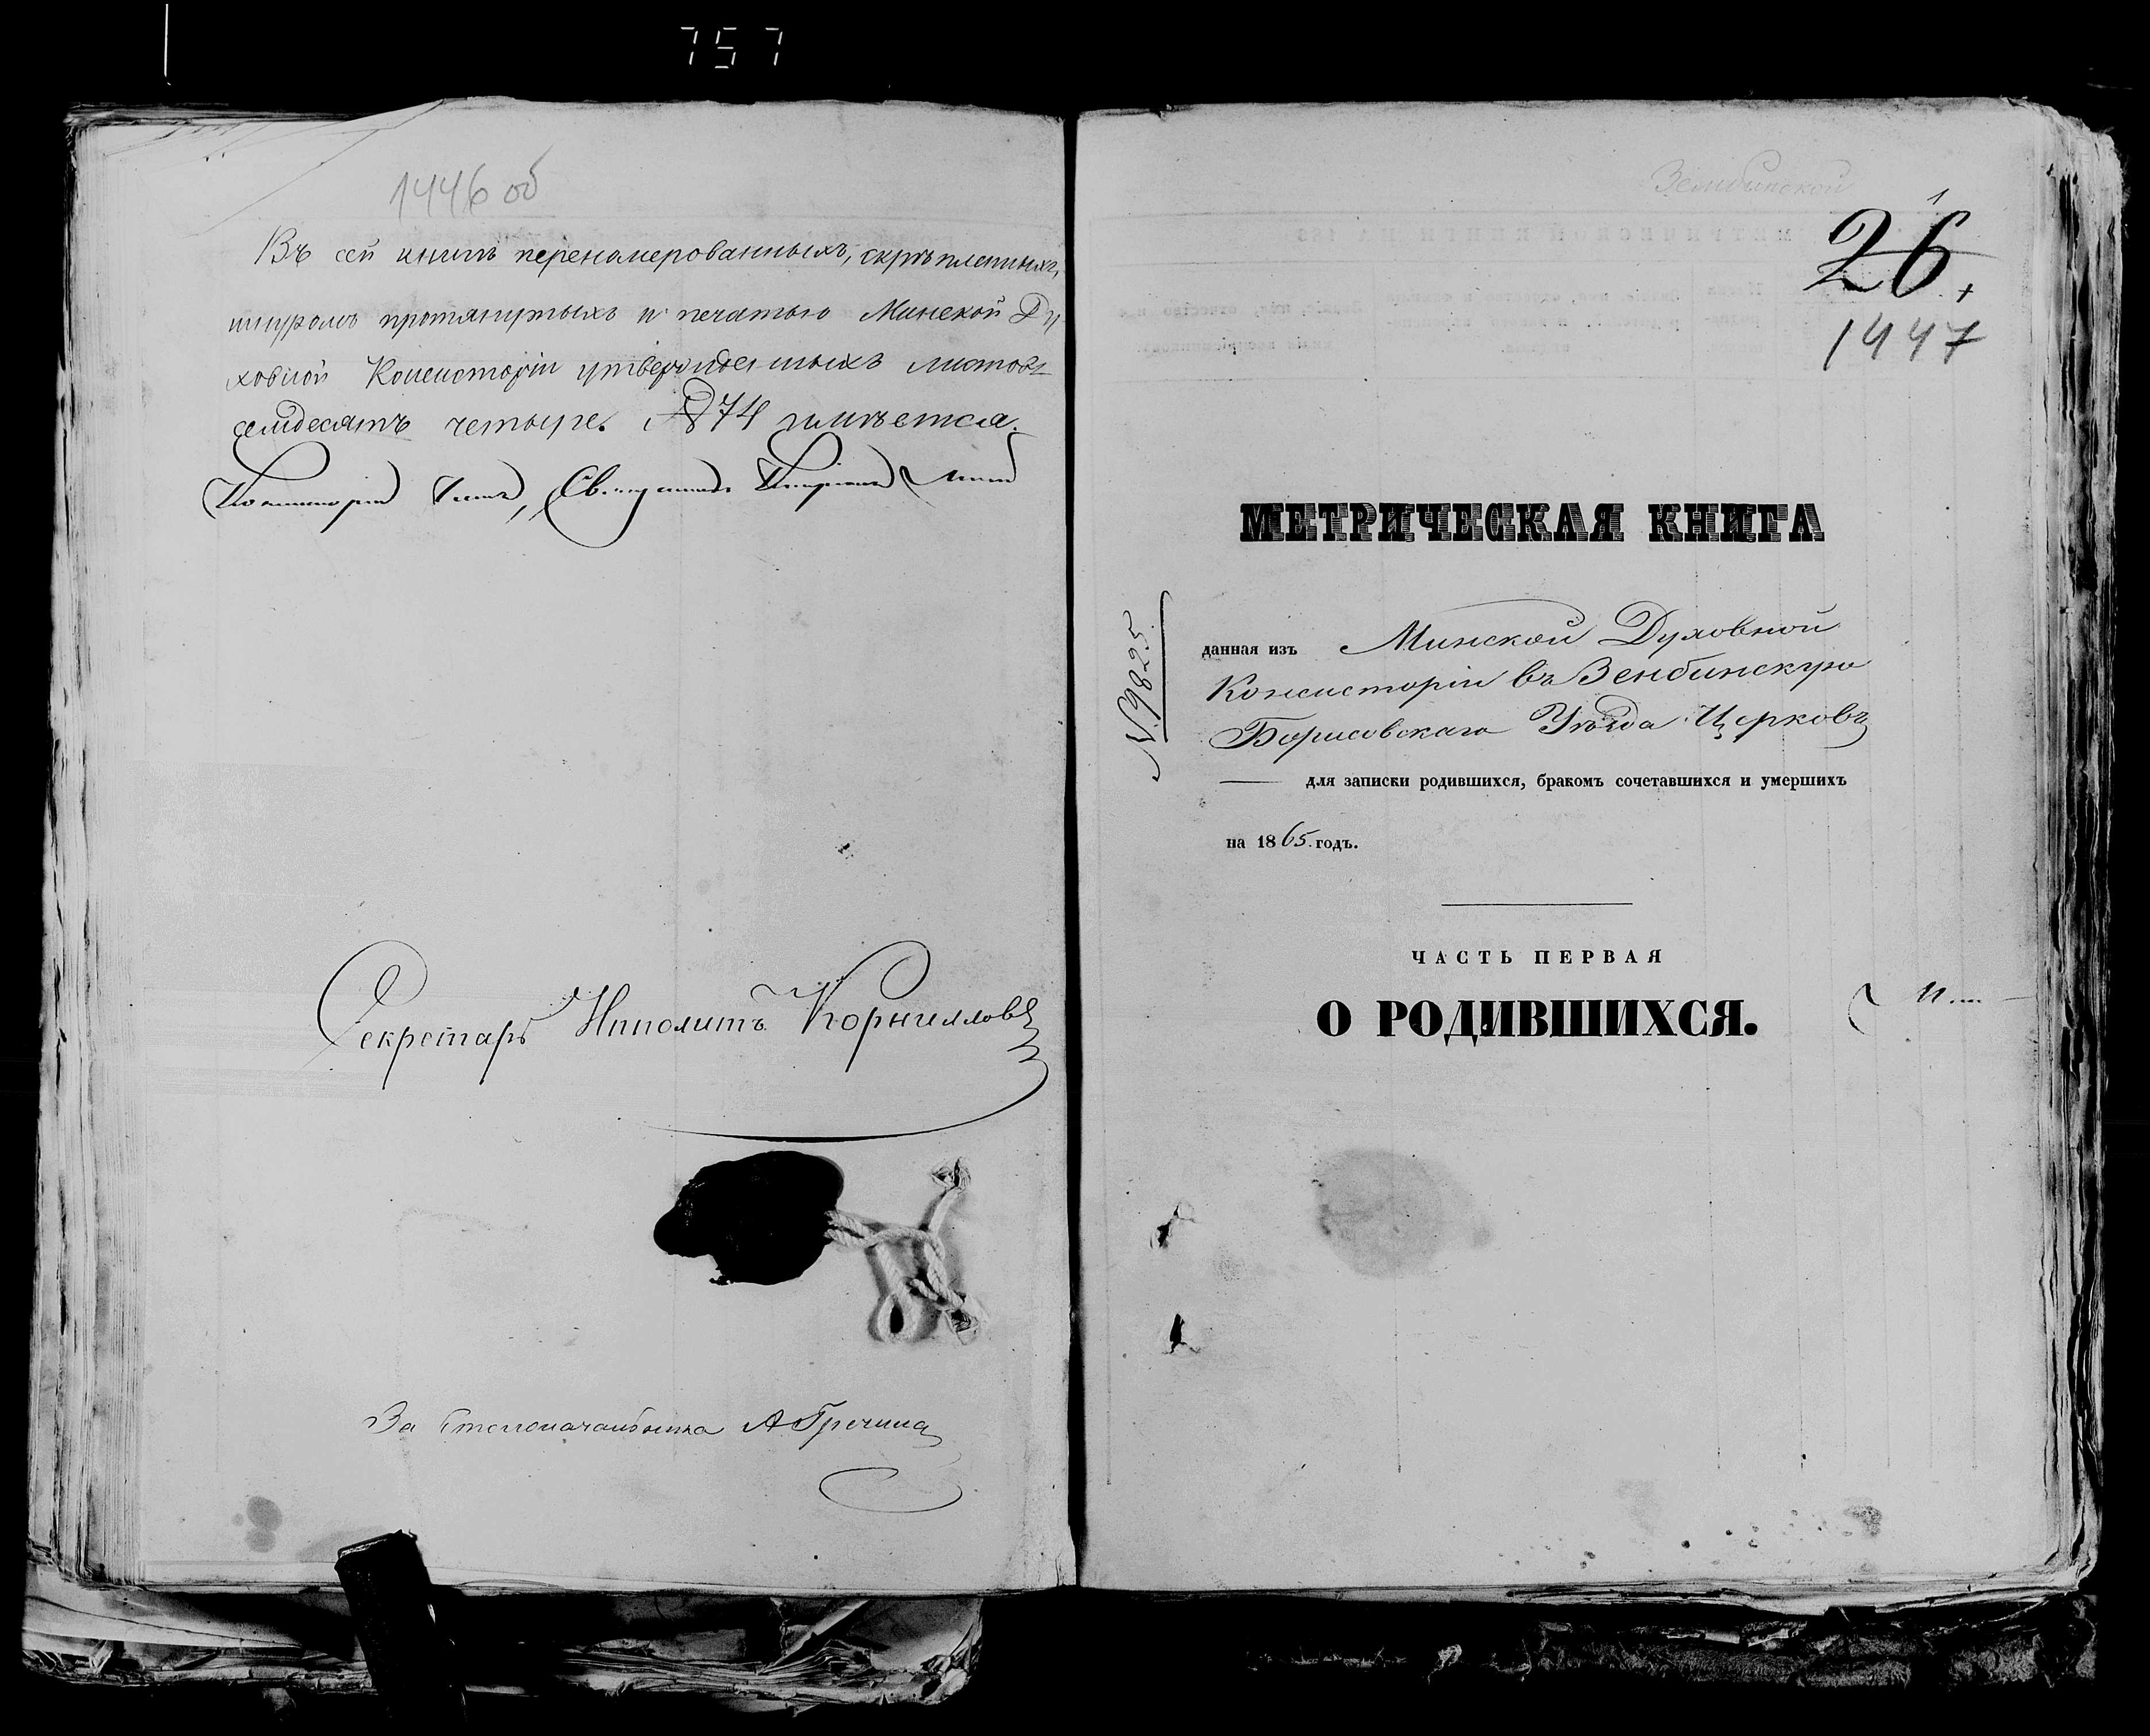 757
1446 об
Въ сей книгѣ перенумерованныхъ, скрѣпленныхъ,
шнуромъ протянутыхъ и печатью Минской Ду
ховной Консисторіи утвержденныхъ листовъ
семдесятъ четыре. № 74 имѣется.
Консисторіи Членъ, Священникъ
Секретарь Ипполитъ Корнилловъ
За Столоначальника А Гречина
Зембинской
1
26.
1447
МЕТРИЧЕСКАЯ КНИГА
N. 9825.
данная изъ Минской Духовной
Консисторіи въ Зенбинскую
Борисовскаго Уѣзда Церковь
для записки родившихся, бракомъ сочетавшихся и умершихъ
на 1865. годъ.
ЧАСТЬ ПЕРВАЯ
О РОДИВШИХСЯ.